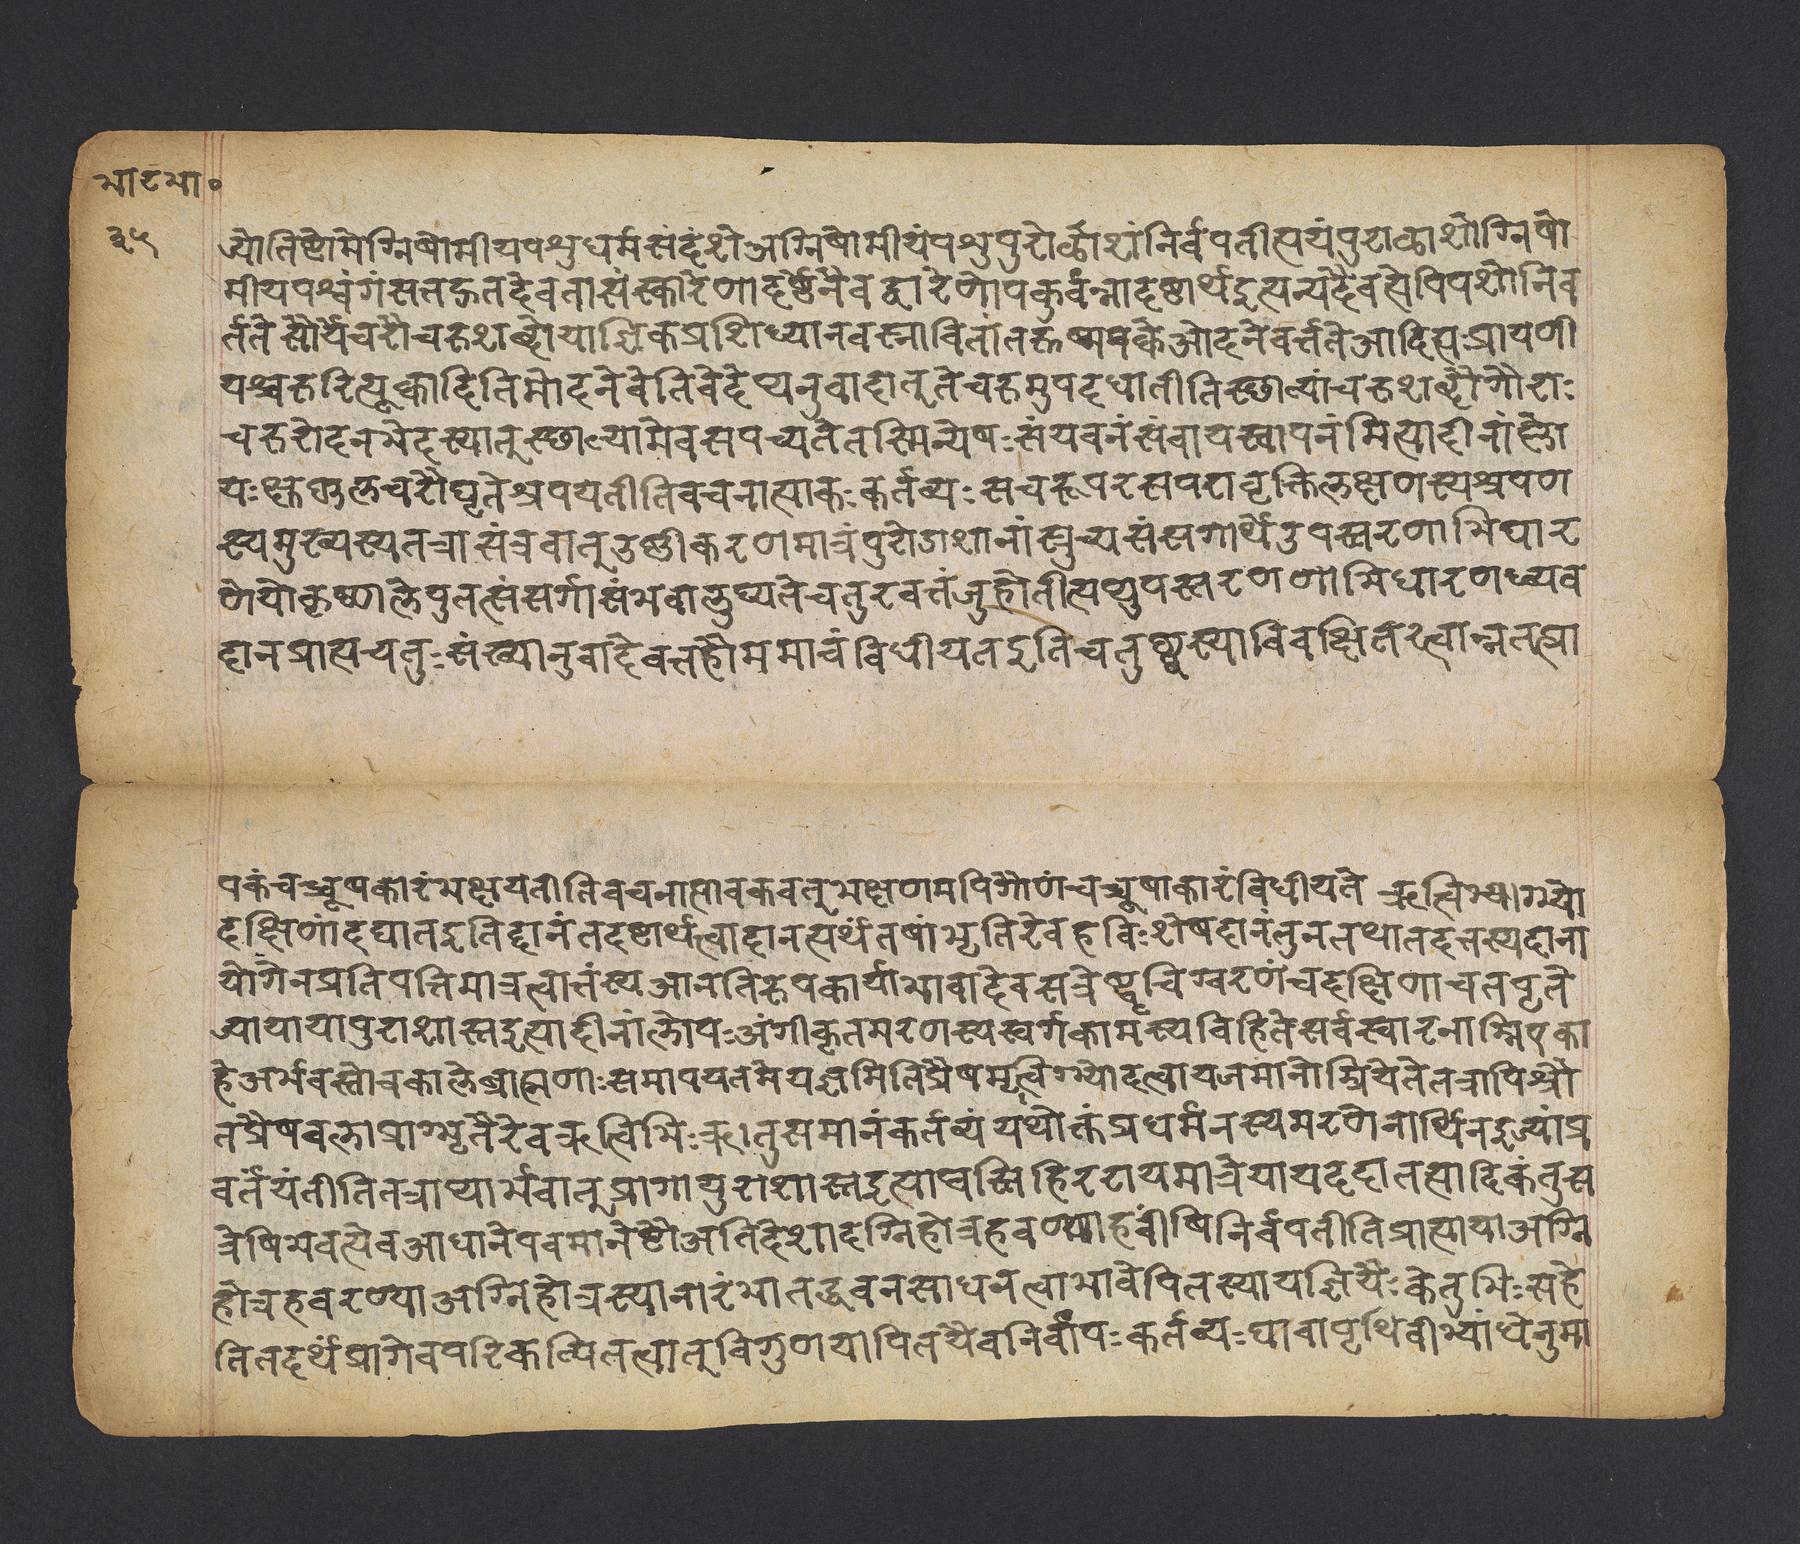 भाटभा०
३५
ज्योतिष्टोमेग्निषोमीयपशुधर्मसंदंशेअग्निषोमीयंपशुपुरोर्छाशंनिर्वपतीत्ययंपुराळाशोग्निषो
मीयपश्वंगंसत्तद्गतदेवतासंस्कारेणादृष्टेनैवद्वारेणोपकुर्वन्नादृष्टार्थइत्यन्यदैवत्येपिपशौनिव
र्ततेसौर्येचरौचरुशब्दोयाज्ञिकप्रशिध्यानवस्नावितांतरूष्मपक्वेओदनेवर्त्ततेआदित्यःप्रायणी
यश्चरुरित्यूक्त्वादितिमोदनेनेतिवेदेप्यनुवादात्तुतेचरुमुपदधातीतिस्छाल्यांचरुशब्दौगौराः
चरुरोदनभेदस्यात्तुस्छाल्यामेवसपच्यतेतस्मिन्येषःसंयवनंसंवायस्थापनंमित्यादीनांलो
यःकृष्णलचरौघृतेश्रपयतीतिवचनात्पाकःकर्तव्यःसचरूपरसपरावृत्तिलक्षणस्यश्रपण
स्यमुख्यस्यतत्रासंत्रवात्तुउष्णीकरणमात्रंपुरोडाशानांस्रुच्यसंसगार्थेउपस्तरणाभिघार
णेयोकृष्णलेपुतत्संसर्गासंभवाल्लुप्यतेचतुरवत्तंजुहोतीत्यप्युपस्तरणणाभिघारणध्यव
दानप्राप्तचतुःसंख्यानुवादेवत्तहोममाचंविधीयतइतिचतुष्ट्वस्याविवक्षितत्वान्नतत्प्रा
पकंचश्चूषकारंभक्षयतीतिवचनात्पावकवत्तुभक्षणमपिगौणंचश्चुषाकारंविधीयते ऋत्विग्भ्यो
दक्षिणांदद्यातइतिद्दानंतदृष्टार्थत्वाद्दानत्यर्थंतषांभृतिरेवहविःशेषदानंतुनतथातदत्तस्यदाना
योगेनप्रतिपत्तिमात्रत्वात्तंस्यआनतिरूपकार्याभावादेवसत्रेष्वृत्विग्वरणंचदक्षिणाचतपृते
ज्यायायापुराशास्तइत्यादीनांल्लोपःअंगीकृतमरणस्यस्वर्गकामस्यविहितेसर्वस्वारनाम्निएका
हेअर्भवस्तोत्रकालेब्राह्मणाःसमापयतमेयज्ञमितिप्रैषमृत्विग्भ्योदत्वायजमानोम्रियेतेतत्रापिश्रौ
तप्रैषवल्लाप्राग्भृतैरेवऋत्विभिःऋतुसमानंकर्तव्यंयथोक्तंप्रधर्मनस्यमरणेनार्थिनइज्यांप्र
वर्तयंतीतितत्राप्यार्भवात्तुप्रागायुराशास्तइत्याद्यस्तिहिररायमात्रेयायददातत्यादिकंतुस
त्रेषिभवत्येवआधानेपवमानेष्टौअतिदेशादग्निहोत्रहवण्याहवींषिनिर्वपतीतिप्रात्पायाअग्नि
होत्रहवरण्याअग्निहोत्रस्यानारंभातद्धवनसाधनत्वाभावेपितस्यायज्ञियैःकेतुभिःसहे
तितदर्थंप्रागेवपरिकल्पितत्वात्तुविगुणयापितयैवनिर्वापःकर्तव्यःद्यावापृथिवीभ्यांधेनुमा